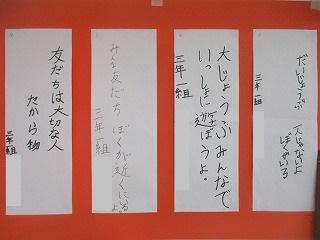 だいじょうぶ
一人じゃないよ
ぼくがいる
三年一組
大じょうぶみんなで
いっしょに遊ぼうよ。
三年一組
みんな友だち
ぼくが近くにいるよ
三年一組
友だちは大切な人
たから物
三年一組